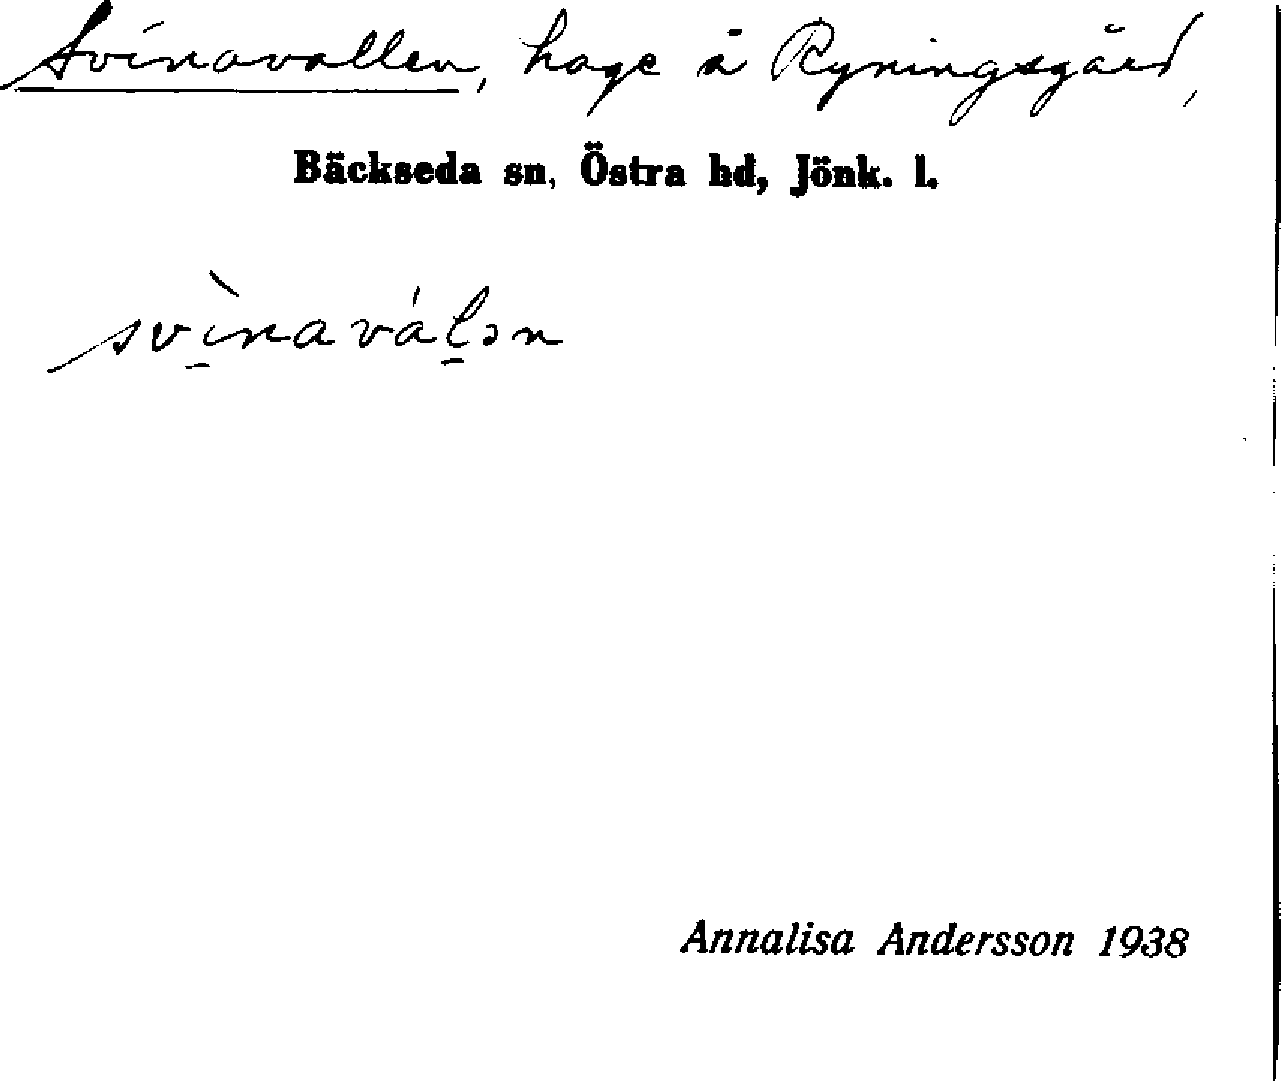 Svinavallen, hage å Ryningsgård,
Bäckseda sn, Östra hd, Jönk. l.
svì̠navál̠ən
Annalisa Andersson 1938